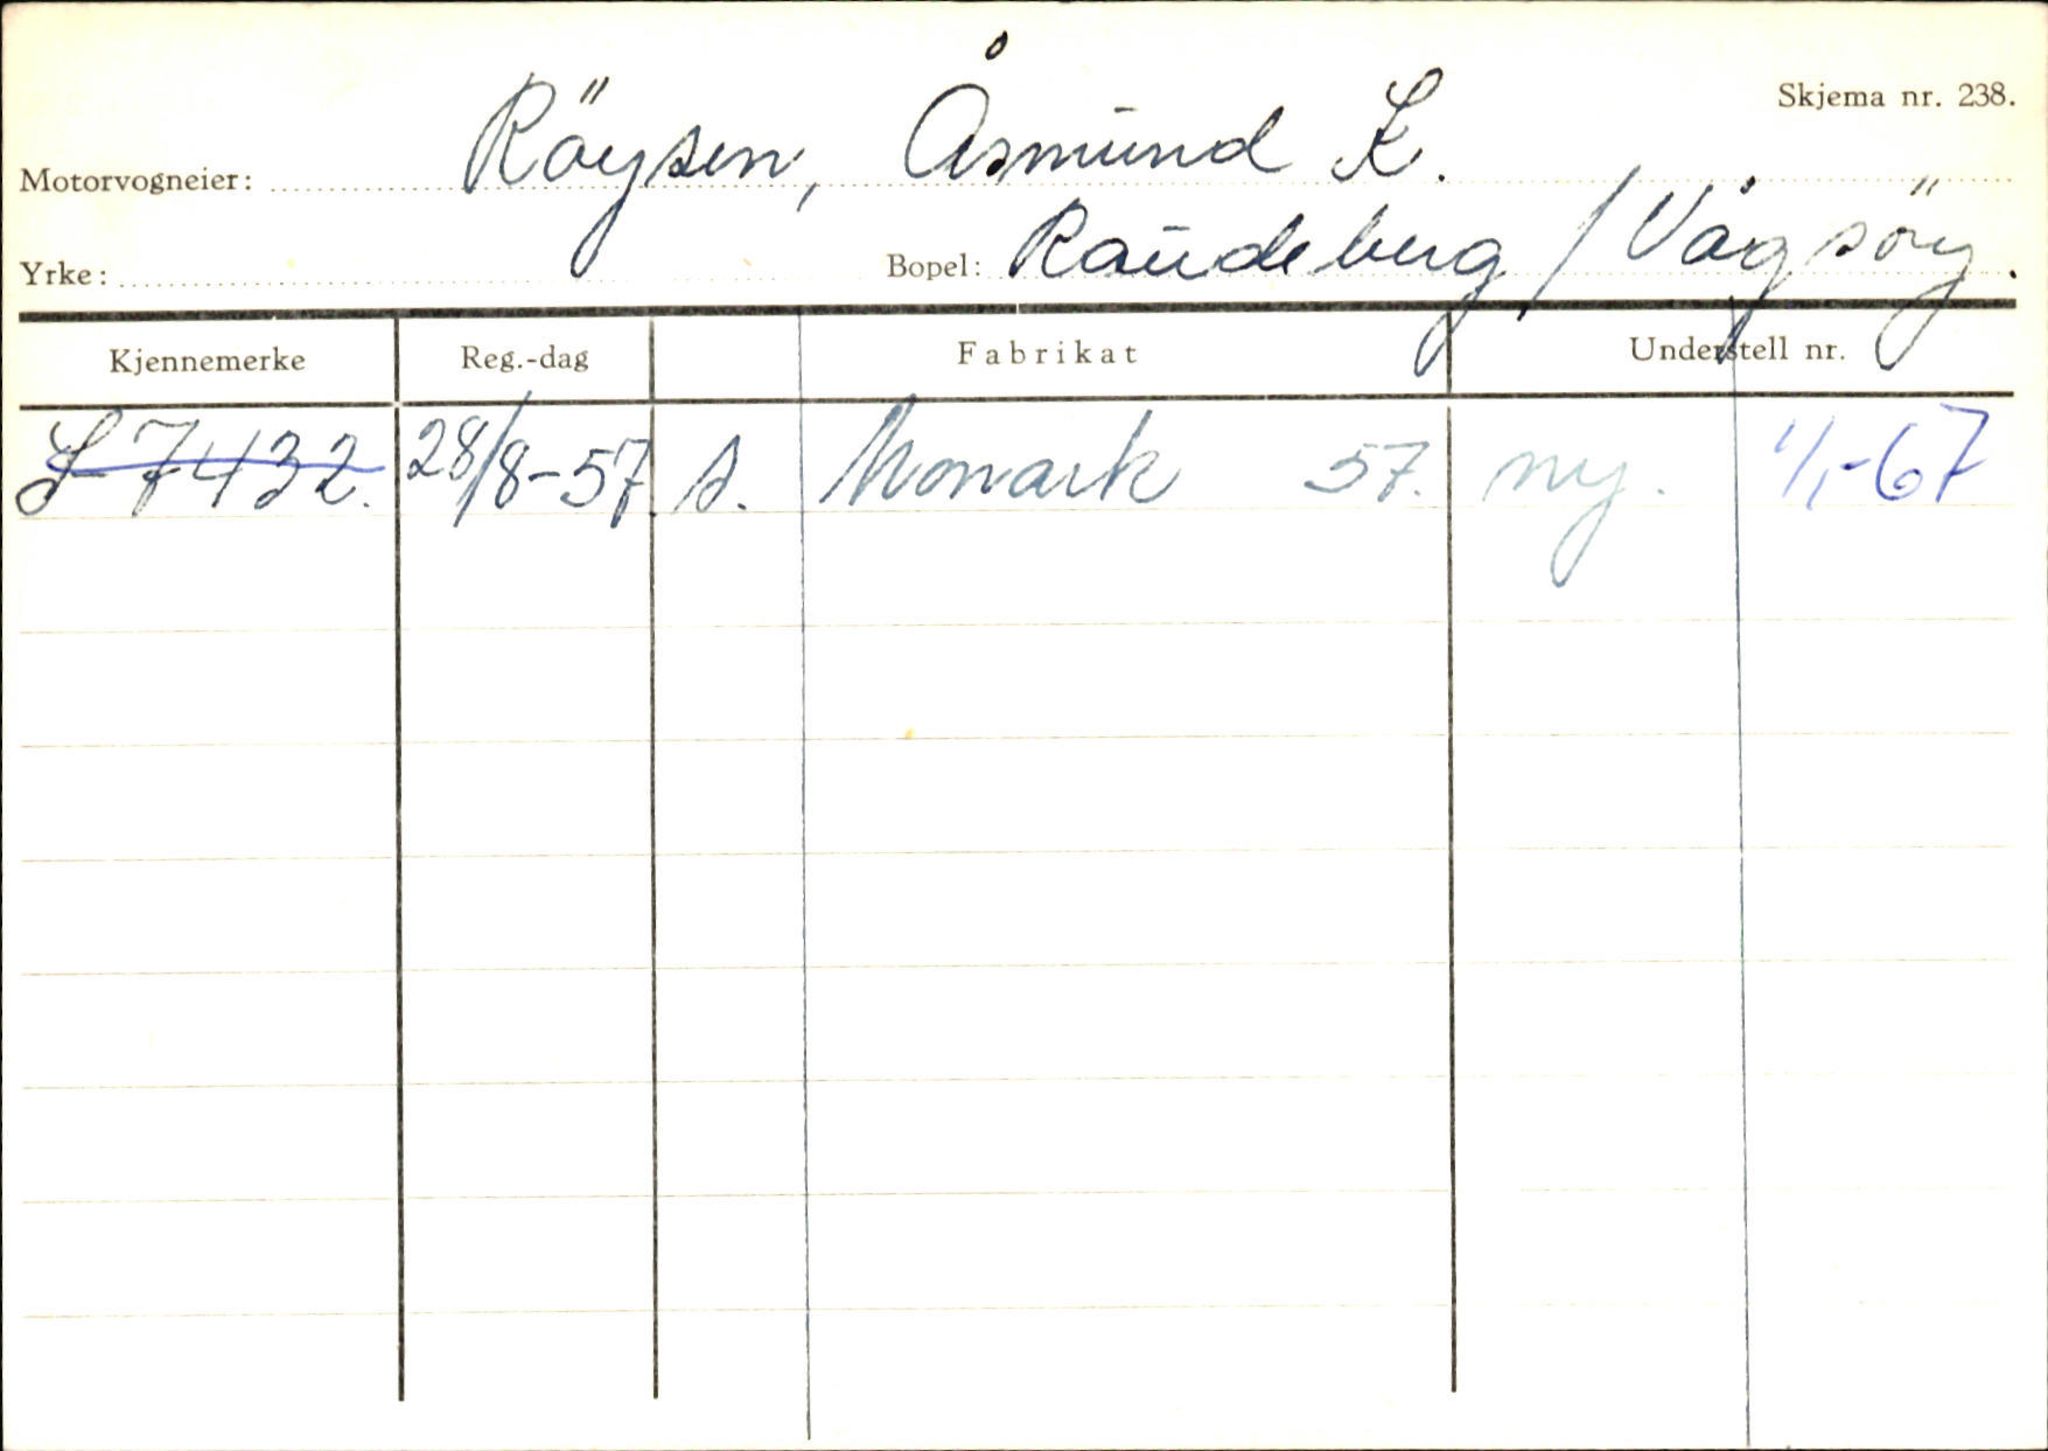 Skjema nr. 238.
Motorvogneier: Röysen, Åsmund K.
Yrke: Bopel: Raudeberg / Vågsöy.
Kjennemerke Reg.-dag Fabrikat Understell nr.
S-7432. 28/8-57. s. Monark 57. ny. 1/1-67